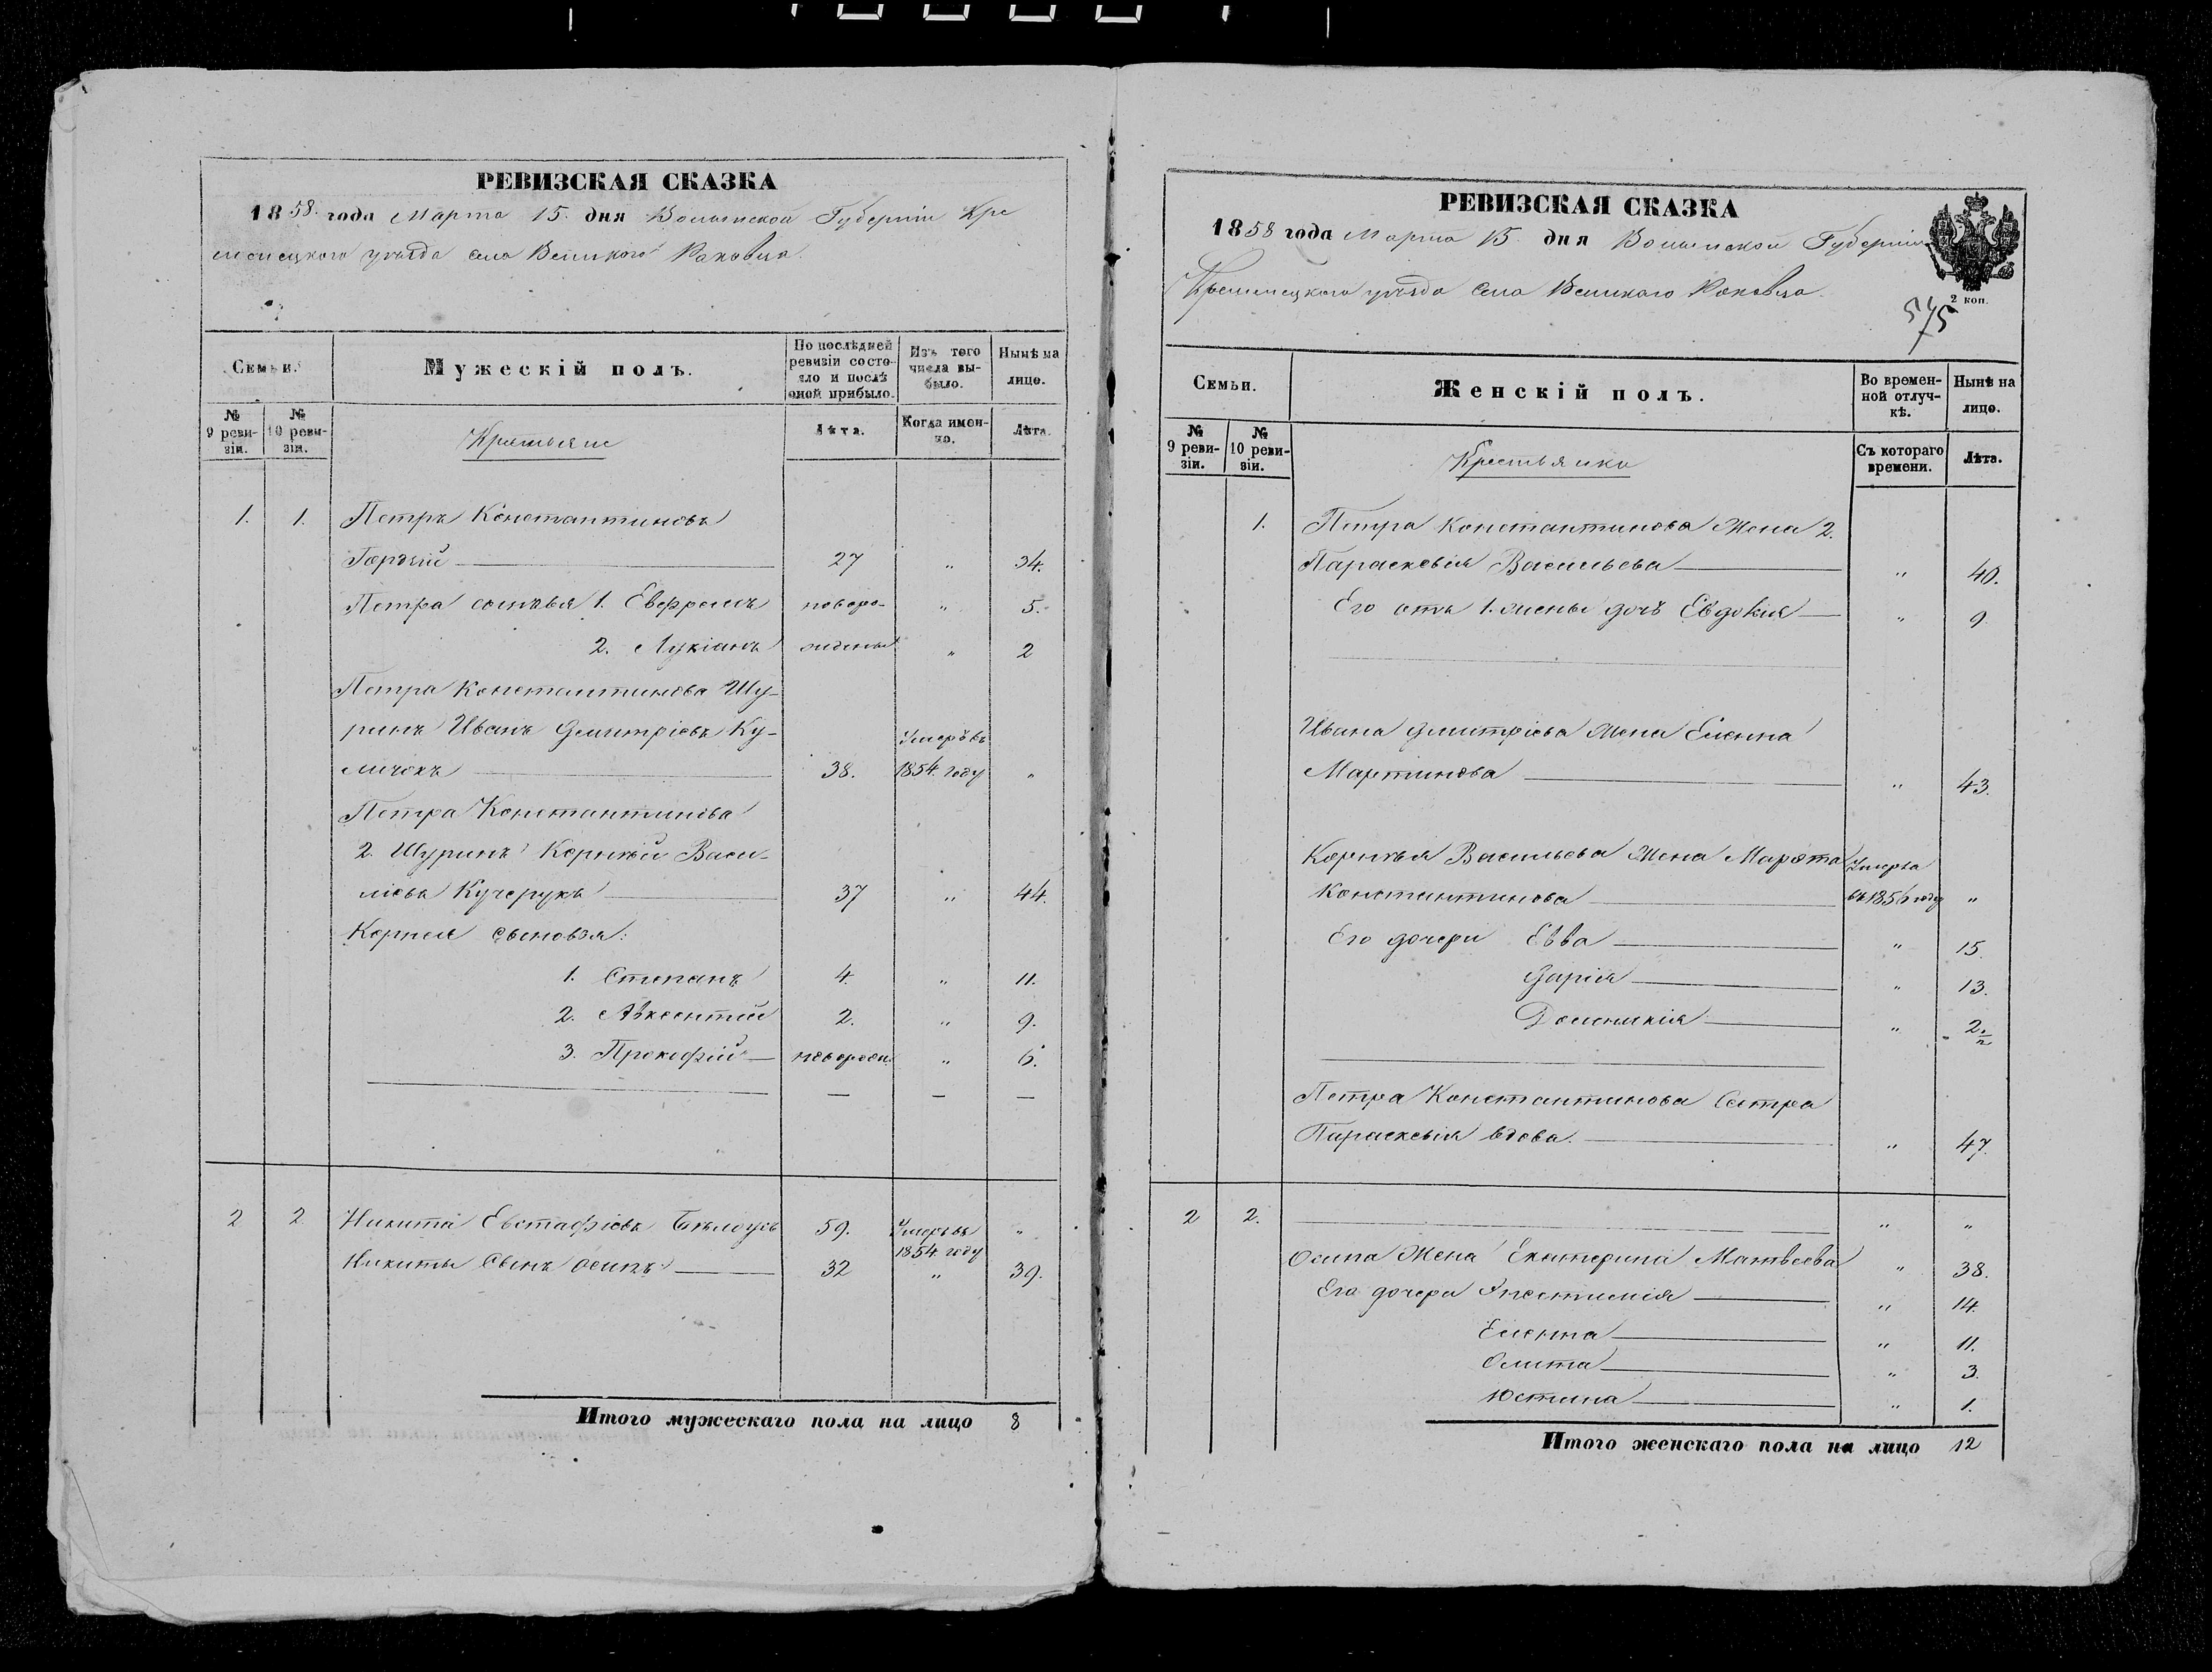 РЕВИЗСКАЯ СКАЗКА
1858. года Марта 15. дня Волынской Губерніи Кре
менецкого уѣзда села Великого Раковца.
Семьи.
Мужескій полъ.
По послѣдней ревизіи состояло и послѣ оной прибыло.
Изъ того числа выбыло.
Нынѣ на лицо.
№ 9 ревизіи.
№ 10 ревизіи.
Крестьяне
Лѣта.
Когда именно.
Лѣта.
1. 1. Петръ Константиновъ
27 „ 34.
Петра сыновья 1. Евфремъ новоро- „ 5.
2. Лукіанъ жденные „ 2
Петра Константинова Шу-
ринъ Иванъ Дмитріевъ Ку- Умеръ въ
личокъ 38. 1854. году „
Петра Константинова
2. Шуринъ Корнѣй Васи-
ліевъ Кучерукъ 37 „ 44.
Корнея сыновья:
1. Степанъ 4. „ 11.
2. Авксентій 2. „ 9.
3. Прокофій новорожд. „ 6.
— — —
2 2 Никита Евстафіевъ Бѣлоусъ 59. Умеръ въ 1854. году „
Никиты Сынъ Осипъ 32 „ 39.
Итого мужескаго пола на лицо 8
РЕВИЗСКАЯ СКАЗКА
1858 года Марта 15. дня Волынской Губерніи
Кременецкого уѣзда села Великого Раковца.
2 коп.
575
Семьи.
Женскій полъ.
Во временной отлучкѣ.
Нынѣ на лицо.
№ 9 ревизіи.
№ 10 ревизіи.
Крестьянки
Съ котораго времени.
Лѣта.
1. Петра Константинова Жена 2.
Параскевія Васильева „ 40.
Его отъ 1. жены дочь Евдокія „ 9.
Ивана Дмитріева Жена Еленна
Мартинова „ 43.
Корнѣя Васильева Жена Марфта Умерла
Константинова въ 1856 году „
Его дочери Евва „ 15.
Дарія „ 13.
„ 2
Петра Константинова Сестра
Параскевія вдова. „ 47.
2 2. „ „
Осипа Жена Екатерина Матвеева „ 38.
Его дочери „ 14.
Еленна „ 11.
„ 3.
Юстина „ 1.
Итого женскаго пола на лицо 12